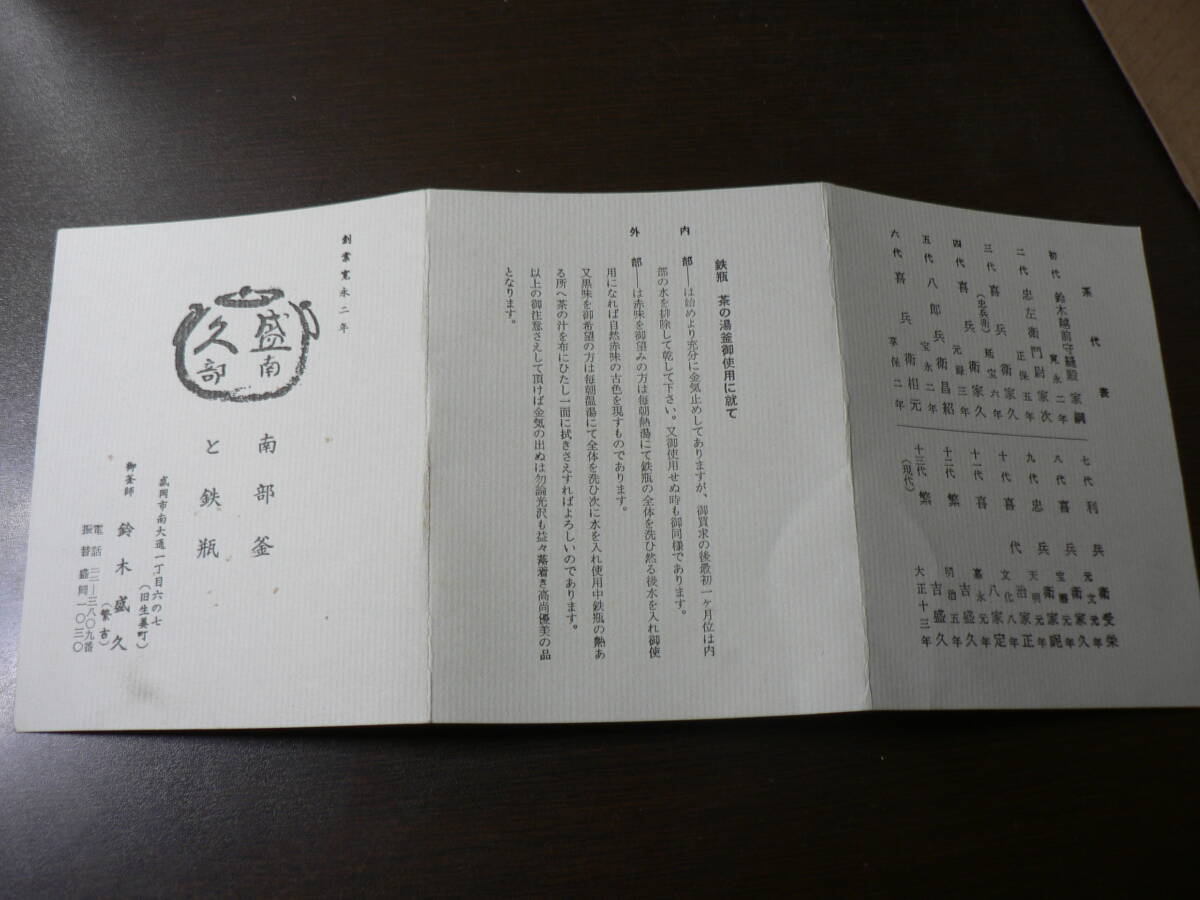 系代表
初代 鈴木越前守縫殿家綱
寛永二年
二代 忠左衛門尉家次
正保五年
三代 喜兵衛家久
(忠兵衛)
延宝六年
四代 喜兵衛家久
元禄三年
五代 八郎兵衛昌紹
宝永二年
六代 喜兵衛相元
享保二年
七代 利兵衛受栄
元文元年
八代 喜兵衛家久
宝暦元年
九代 忠兵衛家
天明元年
十代 喜代治家正
文化八年
十一代 喜八家定
嘉永元年
十二代 繁吉盛久
明治五年
十三代 繁吉盛久
(現代)
大正十三年
鉄瓶 茶の湯釜御使用に就て
内部――は始めより充分に金気止めしてありますが、御買求の後最初一ヶ月位は内
部の水を排除して乾して下さい。又御使用せぬ時も御同様であります。
外部――は赤味を御望みの方は毎朝熱湯にて鉄瓶の全体を洗ひ然る後水を入れ御使
用になれば自然赤味の古色を現すものであります。
又黒味を御希望の方は毎朝温湯にて全体を洗ひ次に水を入れ使用中鉄瓶の熱あ
る所へ茶の汁を布にひたし一面に拭きさえすればよろしいのであります。
以上の御注意さえして頂けば金気の出ぬは勿論光沢も益々落着き高尚優美の品
となります。
創業寛永二年
盛南
久部
南部釜
と鉄瓶
盛岡市南大通一丁目六の七
(旧生姜町)
御釜師 鈴木盛久
(繁吉)
電話 二二―三八〇九番
振替盛岡一〇三〇